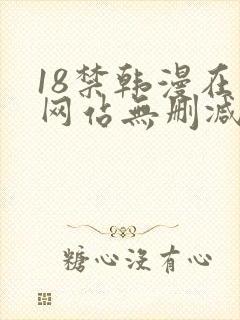 18禁韩漫在
网站無删减
糖心沒有心